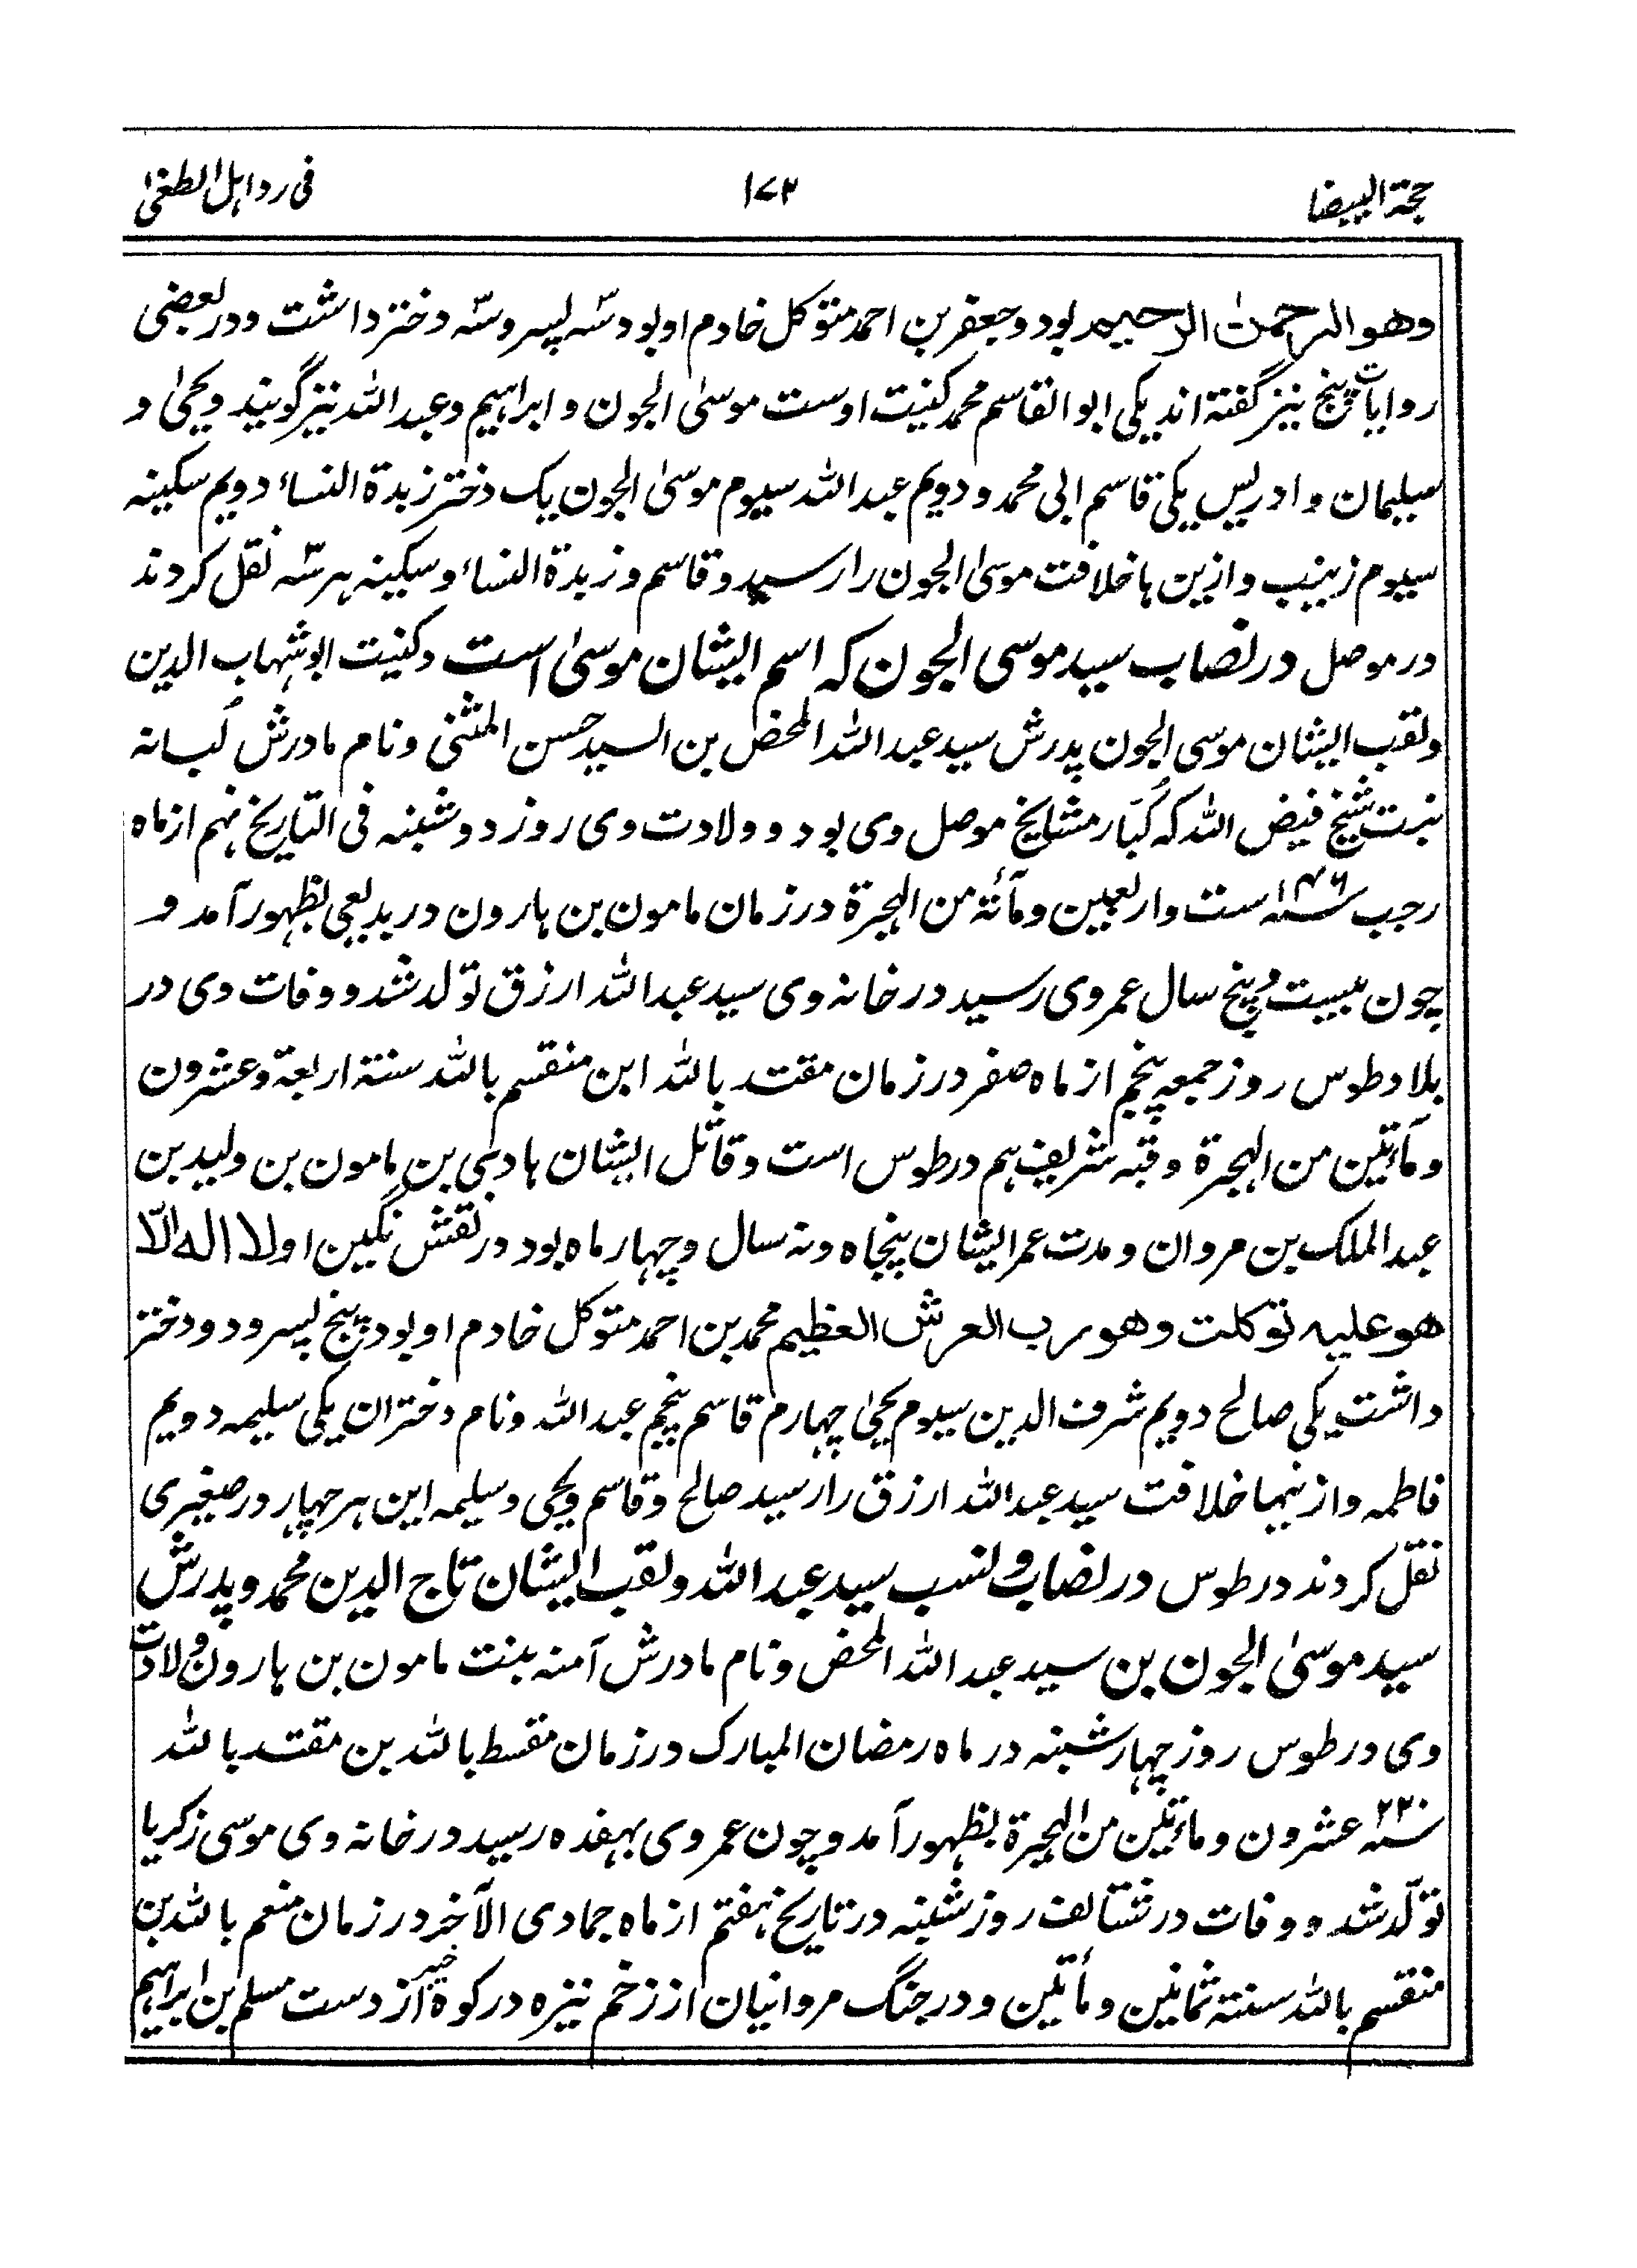 حجة البیضا ۱۷۳ فی رد اہل الطغیٰ
وهو الرحمن الرحیم بود وجعفر بن احمد متوکل خادم او بود سہ پسر وسہ دختر داشت ودر بعضی
روایات پنج نیز گفتہ اند یکی ابو القاسم محمد کنیت اوست موسیٰ الجون و ابراہیم وعبد اللہ نیز گویند ویحیٰی و
سلیمان و ادریس یکی قاسم ابی محمد و دویم عبد اللہ سیوم موسیٰ الجون یک دختر زبدۃ النساء دویم سکینہ
سیوم زینب وازین ہا خلافت موسیٰ الجون را رسید وقاسم و زبدۃ النساء وسکینہ ہر سہ نقل کردند
در موصل در نصاب سید موسی الجون کہ اسم ایشان موسیٰ است وکنیت ابو شہاب الدین
ولقب ایشان موسی الجون پدرش سید عبد اللہ المحض بن السید حسن المثنی ونام مادرش لُبانہ
بنت شیخ فیض اللہ کہ کُبَار مشایخ موصل وی بود و ولادت وی روز دوشنبہ فی التاریخ نہم از ماہ
رجب سنہ ۱۴۶ ست واربعین ومأئة من الہجرة در زمان مامون بن ہارون در بدیعی بظہور آمد و
چون بیست وپنج سال عمر وی رسید در خانہ وی سید عبد اللہ ارزق تولد شد و وفات وی در
بلاد طوس روز جمعہ پنجم از ماہ صفر در زمان مقتدر باللہ ابن منقسم باللہ سنة اربعة وعشرون
ومأتین من الہجرة وقبہ شریف ہم در طوس است وقاتل ایشان ہادی بن مامون بن ولید بن
عبد الملک بن مروان و مدت عمر ایشان پنجاہ ونہ سال وچہار ماہ بود در نقش نگین او لا الہ الّا
هو علیہ توکلت وهو رب العرش العظیم محمد بن احمد متوکل خادم او بود پنج پسر و دو دختر
داشت یکی صالح دویم شرف الدین سیوم یحیٰی چہارم قاسم پنجم عبد اللہ ونام دختران یکی سلیمہ دویم
فاطمہ واز نیہا خلافت سید عبد اللہ ارزق را رسید صالح وقاسم ویحیی وسلیمہ این ہر چہار در صغیری
نقل کردند در طوس در نصاب ونسب سید عبد اللہ ولقب ایشان تاج الدین محمد وپدرش
سید موسیٰ الجون بن سید عبد اللہ المحض ونام مادرش آمنہ بنت مامون بن ہارون ولادت
وی در طوس روز چہار شنبہ در ماہ رمضان المبارک در زمان مقسط باللہ بن مقتدر باللہ
سنہ ۲۲۰ عشرون ومأتین من الہجرة بظہور آمد وچون عمر وی بہفدہ رسید در خانہ وی موسی زکریا
تولّد شد و وفات در روز شنبہ در تاریخ ہفتم از ماہ جمادی الآخر در زمان منعم باللہ بن
منقسم باللہ سنة ثمانین ومأتین و در جنگ مروانیان از زخم نیزہ در کوہ از دست مسلم بن ابراہیم